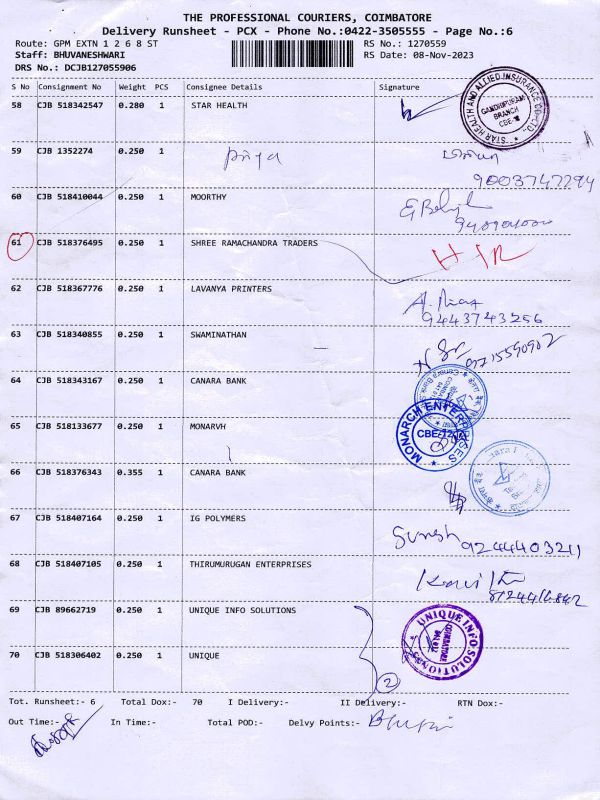 THE PROFESSIONAL COURIERS, COIMBATORE
Delivery Runsheet - PCX - Phone No.:0422-3505555 - Page No.:6
Route: GPM EXTN 1 2 6 8 ST RS No.: 1270559
Staff: BHUVANESHWARI RS Date: 08-Nov-2023
DRS No.: DCJB127055906
S No Consignment No Weight PCS Consignee Details Signature
58 CJB 518342547 0.280 1 STAR HEALTH
STAR HEALTH AND ALLIED INSURANCE CO. LTD.,
GANDHIPURAM
BRANCH
CBE
59 CJB 1352274 0.250 1 priya
9003747294
60 CJB 518410044 0.250 1 MOORTHY
61 CJB 518376495 0.250 1 SHREE RAMACHANDRA TRADERS
62 CJB 518367776 0.250 1 LAVANYA PRINTERS
9443743256
63 CJB 518340855 0.250 1 SWAMINATHAN
9715590902
64 CJB 518343167 0.250 1 CANARA BANK
65 CJB 518133677 0.250 1 MONARVH
MONARCH ENTERPRISES
CBE-12
66 CJB 518376343 0.355 1 CANARA BANK
67 CJB 518407164 0.250 1 IG POLYMERS
Suresh
9244403211
68 CJB 518407105 0.250 1 THIRUMURUGAN ENTERPRISES
69 CJB 89662719 0.250 1 UNIQUE INFO SOLUTIONS
UNIQUE INFO SOLUTIONS
COIMBATORE
70 CJB 518306402 0.250 1 UNIQUE
2
Tot. Runsheet:- 6 Total Dox:- 70 I Delivery:- II Delivery:- RTN Dox:-
Out Time:- In Time:- Total POD:- Delvy Points:-